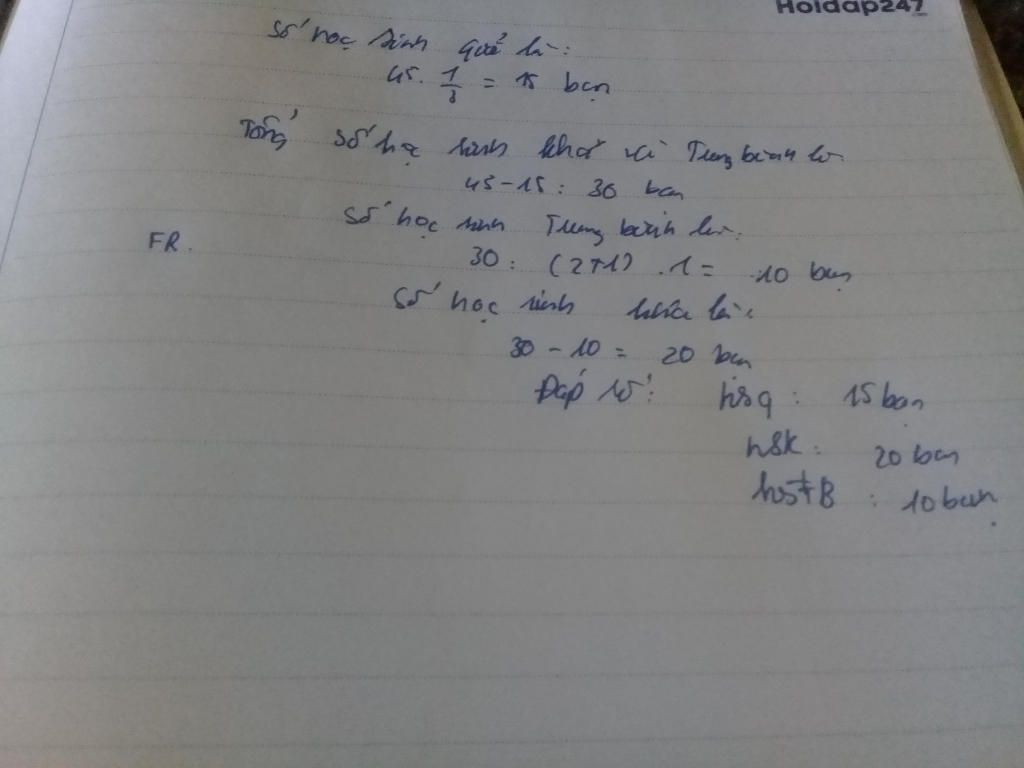 Hoidap247
Số học sinh giỏi là:
45. 1/3 = 15 bạn
Tổng số học sinh khá và Trung bình là
45-15: 30 bạn
Số học sinh Trung bình là:
30: (2+1) .1= 10 bạn
FR.
Số học sinh khá là:
30-10 = 20 bạn
Đáp số: hsg: 15 bạn
hsk: 20 bạn
hstB: 10 bạn